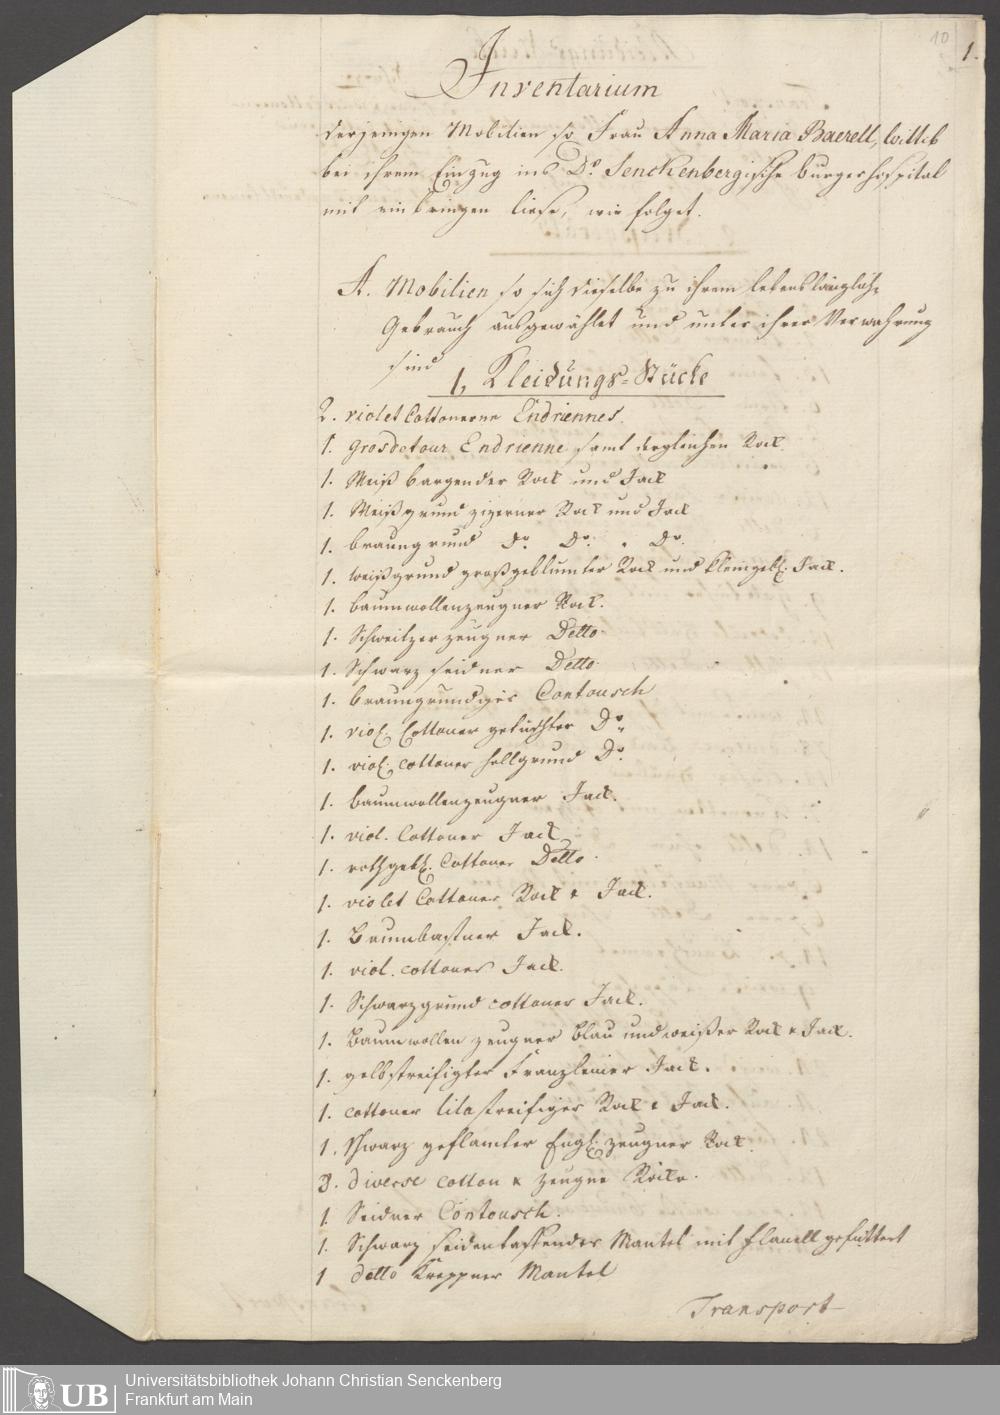 10
1.
Inventarium
derjenigen Mobilien so Frau Anna Maria Baerell, Wittib
bei ihrem Einzug ins Dr. Senckenbergische burgerhospital
mit einbringen liese, wie folget.
A. Mobilien so sich dieselbe zu ihrem lebenslänglich.
Gebrauch ausgewählet und unter ihrer Verwahrung
sind
1, Kleidungs-Stücke
2. violet Cottonerne Endriennes.
1. grosdetour Endrienne samt dergleichen Rock.
1. Weiß bargender Rock und Jack
1. Weißgrund zizerner Rock und Jack
1. braungrund do. Do. " Do.
1. weißgrund großgeblumter Rock und kleingebl. Jack.
1. baumwollenzeugner Rock.
1. Schweitzer zeugner Detto
1. Schwarz seidner Detto
1. braungrundiger Contousch
1. viol. Cottoner Do.
1. viol. cottoner hellgrund Do.
1. baumwollenzeugner Jack.
1. viol. Cottoner Jack
1. rothgebl. Cottoner Detto.
1. violet Cottoner Rock & Jack.
1. Baumbastner Jack.
1. viol. cottoner Jack.
1. Schwarzgrund cottoner Jack.
1. Baumwollen zeugner blau und weißer Rock & Jack.
1. gelbstreifigter Franzleiner Jack.
1. cottoner lilastreifiger Rock & Jack.
1. Schwarz geflamter Engl. zeugner Rock.
3. diverse cotton & zeugne Röcke.
1. Seidner Contousch.
1. Schwarz seidentaffender Mantel mit Flanell gefüttert
1 detto Kreppner Mantel
Transport
UB
Universitätsbibliothek Johann Christian Senckenberg
Frankfurt am Main